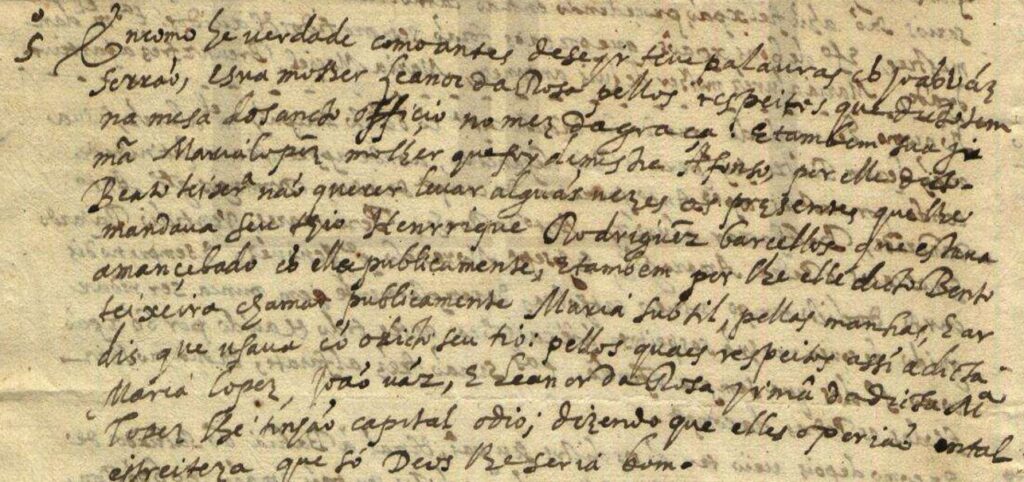 5º E como he verdade como antes de se ir teve palauras cõ João váz
serrão, e sua molher Leanor da Rosa pellos respeitos que
na mesa do sancto officio no mez da graça: E tambem sua ir
mã Maria lopez molher que foy de mestre Afonso, por elle
Bento teixrª não querer levar algũas vezes os presentes que lhe
mandava seu thio Henrrique Rodriguez barcellos que estava
amancebado cõ ella publicamente, E tambem por lhe elle dicto Bento
teixeira chamar publicamente Maria subtil, pellas manhas, E ar
dis que usava cõ o dicto seu tio: pellos quaes respeitos assi a dicta
Maria Lopez, João váz, E Leanor da Rosa yrmã da dicta Mª
Lopez lhe tinhão capital odio, dizendo que elles o poriaõ em tal
estreiteza que só Deos lhe seria bom.